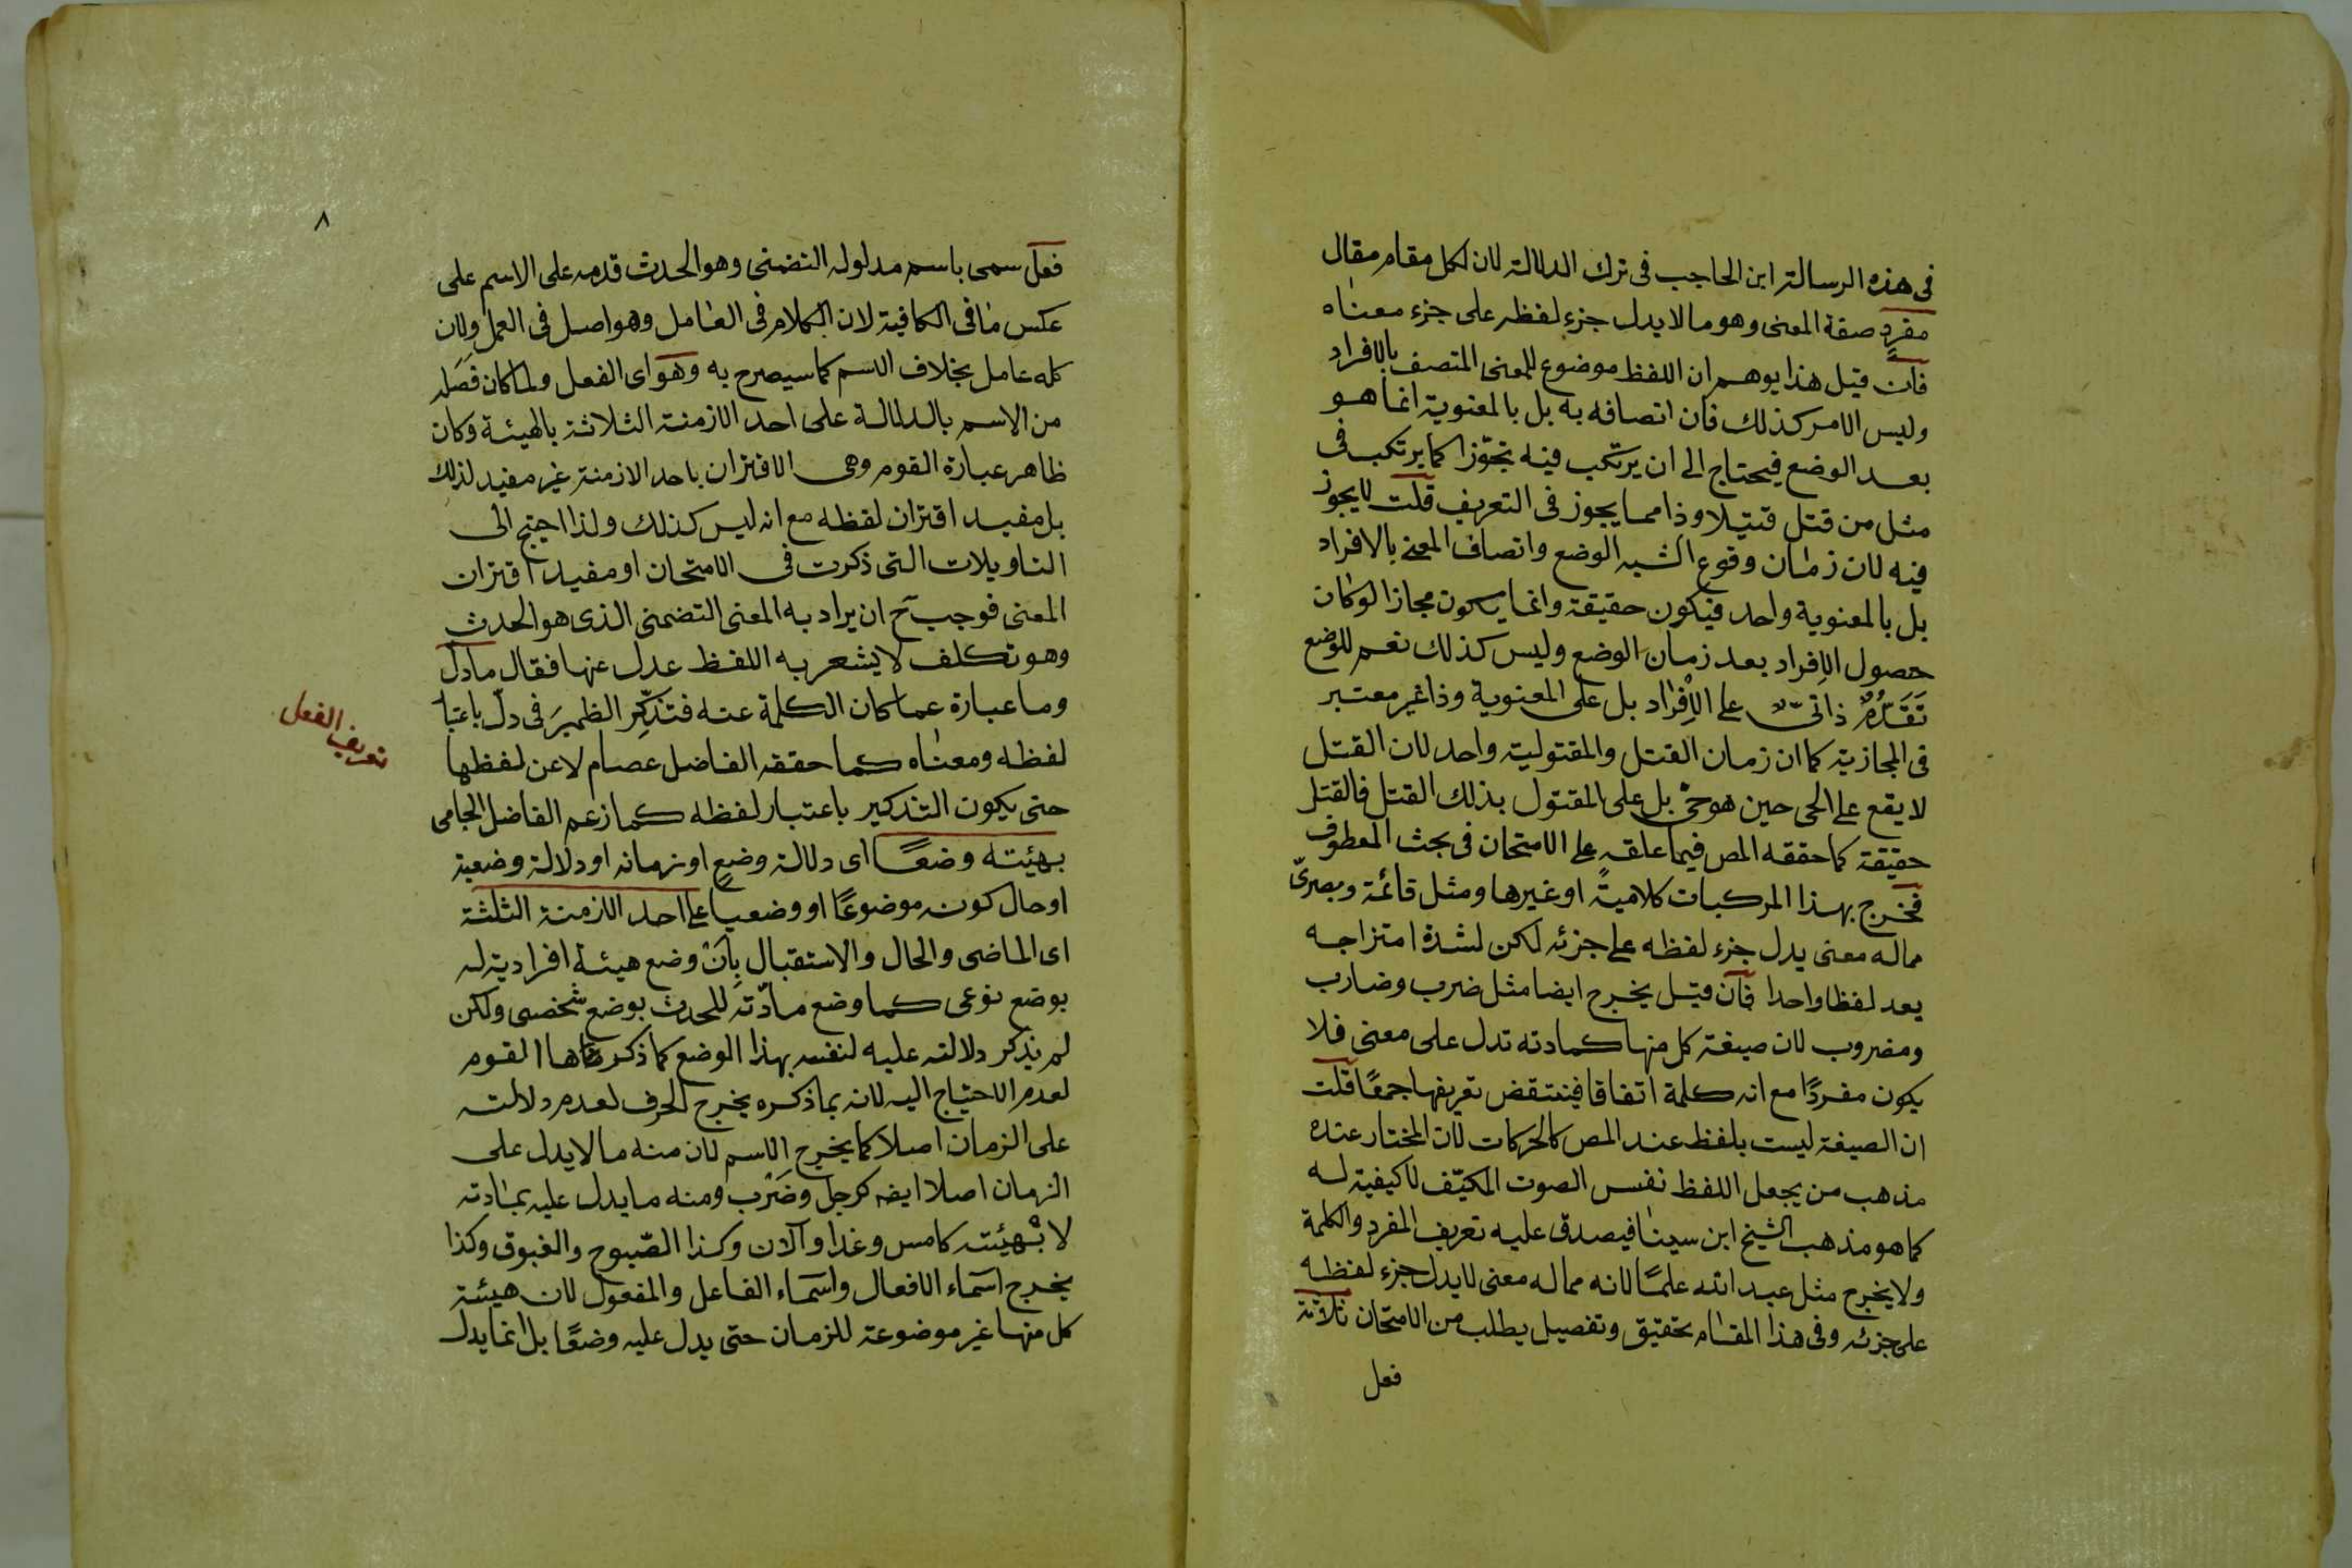 فى هذه الرسالة ابن الحاجب فى ترك الدلالة لان لكل مقام مقال
مفرد صفة المعنى وهو ما لا يدل جزء لفظه على جزء معناه
فان قيل هذا يوهم ان اللفظ موضوع للمعنى المتصف بالافراد
وليس الامر كذلك فان اتصافه به بل بالمعنوية انما هو
بعد الوضع فيحتاج الى ان يرتكب فيه تجوّزا كما يرتكب فى
مثل من قتل قتيلا وذا مما يجوز فى التعريف قلت لا يجوز
فيه لان زمان وقوع الشبه الوضع واتصاف المعنى بالافراد
بل بالمعنوية واحد فيكون حقيقة وانما يكون مجازا لو كان
حصول الافراد بعد زمان الوضع وليس كذلك نعم للوضع
تَقَدُّمٌ ذاتىّ على الافراد بل على المعنوية وذا غير معتبر
فى المجازية كما ان زمان القتل والمقتولية واحد لان القتل
لا يقع على الحى حين هو حىّ بل على المقتول بذلك القتل فالقتل
حقيقة كما حققه المص فيما علقه على الامتحان فى بحث المعطوف
فخرج بهذا المركبات كلاميةً او غيرها ومثل قائمة وبصرىّ
مما له معنى يدل جزء لفظه على جزئه لكن لشدة امتزاجه
يعد لفظا واحدا فان قيل يخرج ايضا مثل ضرب وضارب
ومضروب لان صيغة كل منها كمادته تدل على معنى فلا
يكون مفردًا مع انه كلمة اتفاقا فينتقض تعريفها جمعًا قلت
ان الصيغة ليست بلفظ عند المص كالحركات لان المختار عنده
مذهب من يجعل اللفظ نفس الصوت المكيّف لا كيفية له
كما هو مذهب الشيخ ابن سينا فيصدق عليه تعريف المفرد والكلمة
ولا يخرج مثل عبد الله علمًا لانه مما له معنى لا يدل جزء لفظه
على جزئه وفى هذا المقام تحقيق وتفصيل يطلب من الامتحان ثلاثة
فعل
٨
فعل سمى باسم مدلوله التضمنى وهو الحدث قدمه على الاسم على
عكس ما فى الكافية لان الكلام فى العامل وهو اصل فى العمل ولان
كله عامل بخلاف الاسم كما سيصرح به وهو اى الفعل ولما كان فصَله
من الاسم بالدلالة على احد الازمنة الثلاثة بالهيئة وكان
ظاهر عبارة القوم وهى الاقتران باحد الازمنة غير مفيد لذلك
بل مفيد اقتران لفظه مع انه ليس كذلك ولذا احتيج الى
التاويلات التى ذكرت فى الامتحان او مفيد اقتران
المعنى فوجب ح ان يراد به المعنى التضمنى الذى هو الحدث
وهو تكلف لا يشعر به اللفظ عدل عنها فقال ما دل
وما عبارة عما كان الكلمة عنه فتذكِّر الظميرَ فى دلّ باعتبا
لفظه ومعناه كما حققه الفاضل عصام لا عن لفظها
حتى يكون التذكير باعتبار لفظه كما زعم الفاضل الجامى
بهيئته وضعًا اى دلالة وضعٍ او زمانه او دلالة وضعية
او حال كونه موضوعًا او وضعيا على احد الازمنة الثلثة
اى الماضى والحال والاستقبال بِاَنْ وضع هيئة افرادية له
بوضع نوعى كما وضع مادّته للحدث بوضع شخصى ولكن
لم يذكر دلالته عليه لنفسه بهذا الوضع كما ذكرها القوم
لعدم الاحتياج اليه لانه بما ذكره يخرج الحرف لعدم دلالته
على الزمان اصلا كما يخرج الاسم لان منه ما لا يدل على
الزمان اصلا ايضه كرجل وضَرْب ومنه ما يدل عليه بمادته
لا بهيئته كامس وغدا والآن وكذا الصّبوح والغبوق وكذا
يخرج اسماء الافعال واسماء الفاعل والمفعول لان هيئة
كل منها غير موضوعة للزمان حتى يدل عليه وضعًا بل انما يدل
تعريف الفعل